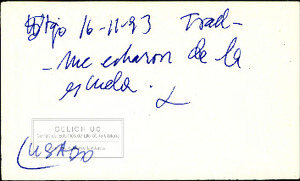 Vigo 16-11-93 Trad-
- me echaron de la
escuela.
DELICH UC
(USADO